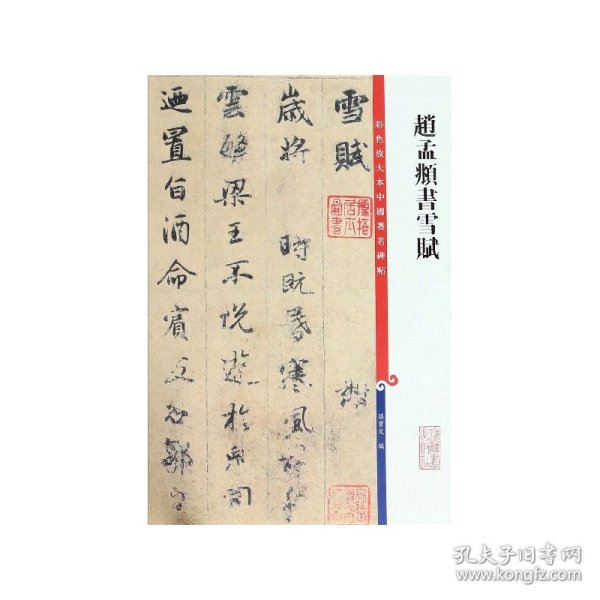 趙孟頫書雪賦
彩色放大本中國著名碑帖
孫寶文 編
雪賦
歲將 時既昏寒風
雲繁梁王不悅遊於兔園
迺置旨酒命賓友召鄒
孔夫子旧书网
www.kongfz.com